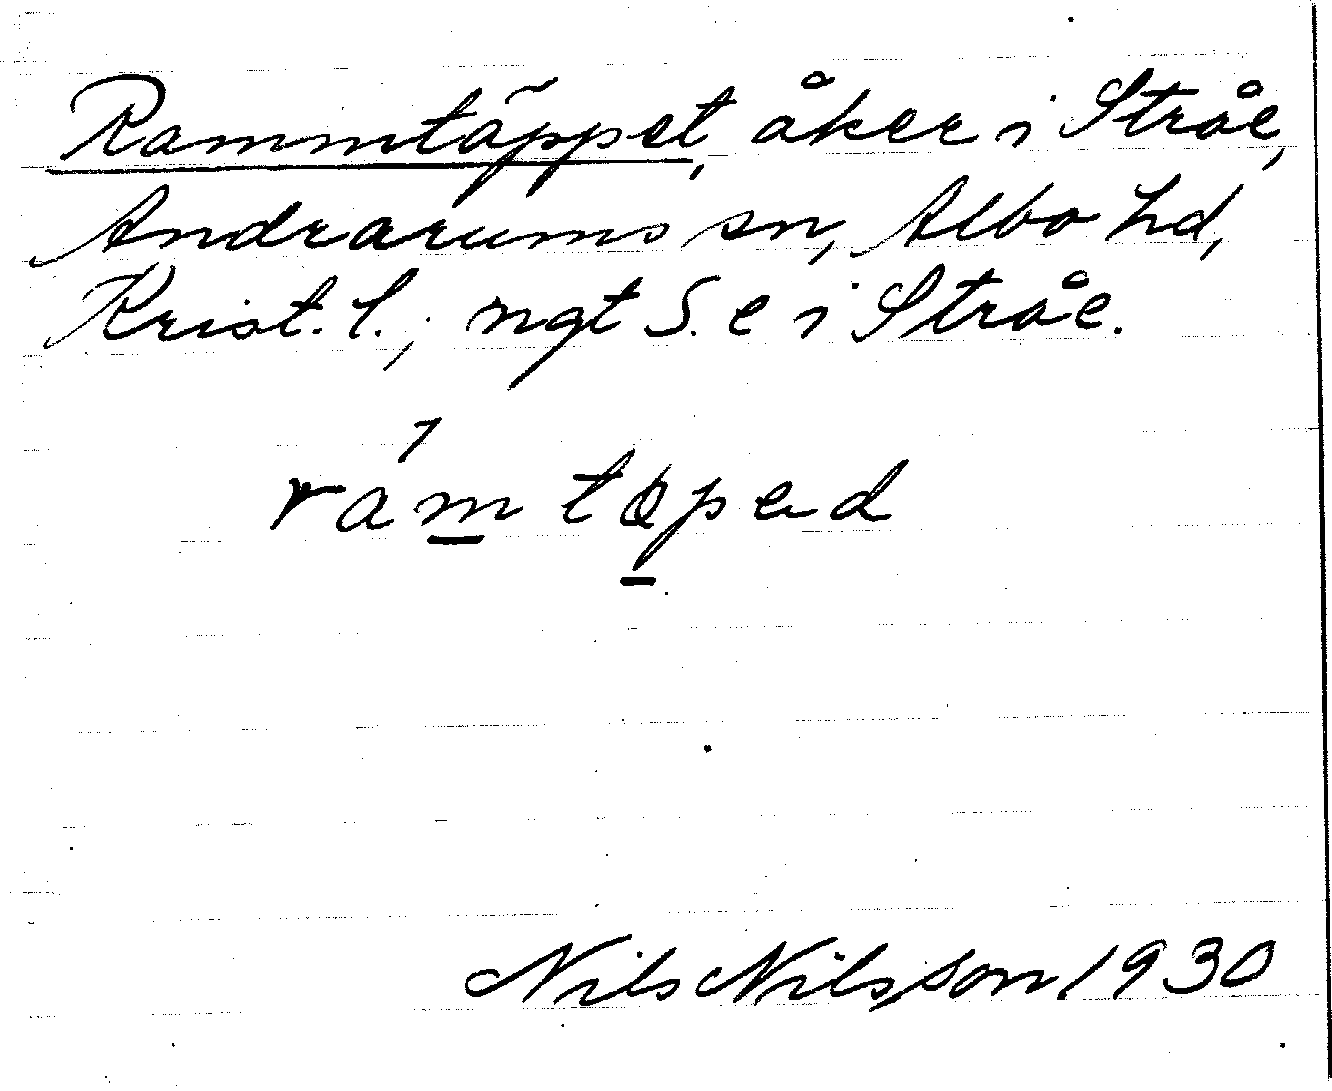 Rammtäppet, åker i Stråe,
Andrarums sn, Albo hd,
Krist. l.; ngt S. e i Stråe.
ramtæpəd
Nils Nilsson 1930